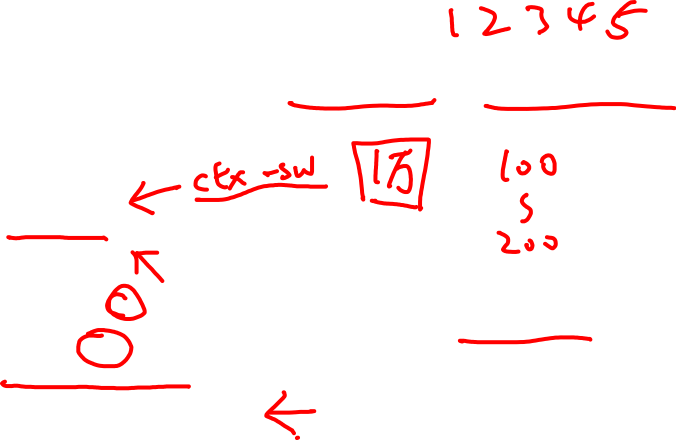 1 2 3 4 5
ctx-sw 1万 100
s
200